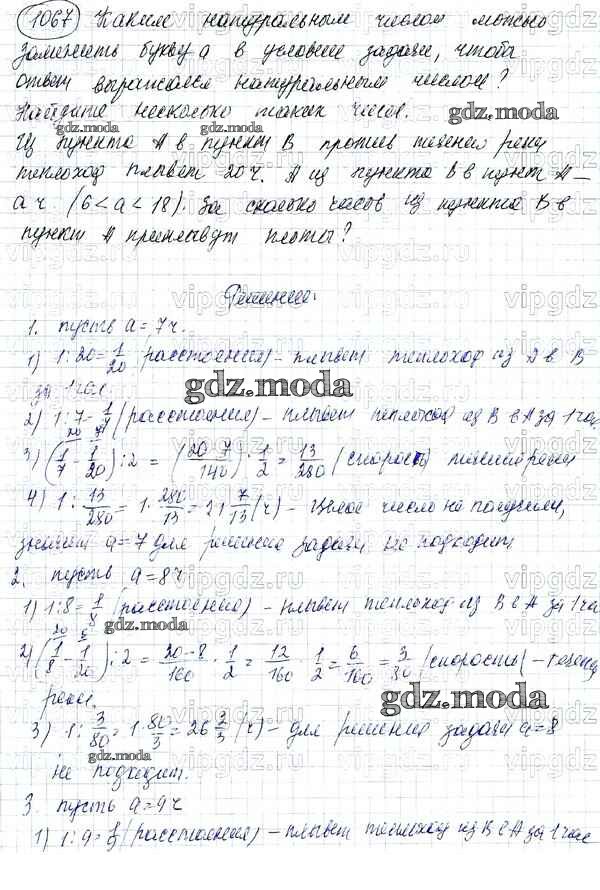 1067 Каким натуральным числом можно
заменить букву a в условии задачи, чтобы
ответ выражался натуральным числом?
Найдите несколько таких чисел.
Из пункта A в пункт B против течения реки
теплоход плывет 20 ч. А из пункта B в пункт A –
a ч (6 < a < 18). За сколько часов из пункта B в
пункт A приплывут плоты?
Решение:
1. пусть a = 7 ч.
1) 1:20 = 1/20 (расстояния) – плывет теплоход из A в B
за 1 час.
gdz.moda
2) 1:7 = 1/7 (расстояния) – плывет теплоход из B в A за 1 час
3) (1/7 - 1/20) : 2 = (20-7/140) · 1/2 = 13/280 (скорость) течения реки
4) 1 : 13/280 = 1 · 280/13 = 21 7/13 (ч) – целое число не получили,
значит a = 7 для решения задачи не подходит
2. пусть a = 8 ч
1) 1:8 = 1/8 (расстояния) – плывет теплоход из B в A за 1 час
gdz.moda
2) (1/8 - 1/20) : 2 = 20-8/160 · 1/2 = 12/160 · 1/2 = 6/160 = 3/80 (скорость) – течения
реки.
gdz.moda
3) 1 : 3/80 = 1 · 80/3 = 26 2/3 (ч) – для решения задачи a = 8
не подходит.
gdz.moda
3. пусть a = 9 ч
1) 1:9 = 1/9 (расстояния) – плывет теплоход из B в A за 1 час
gdz.moda